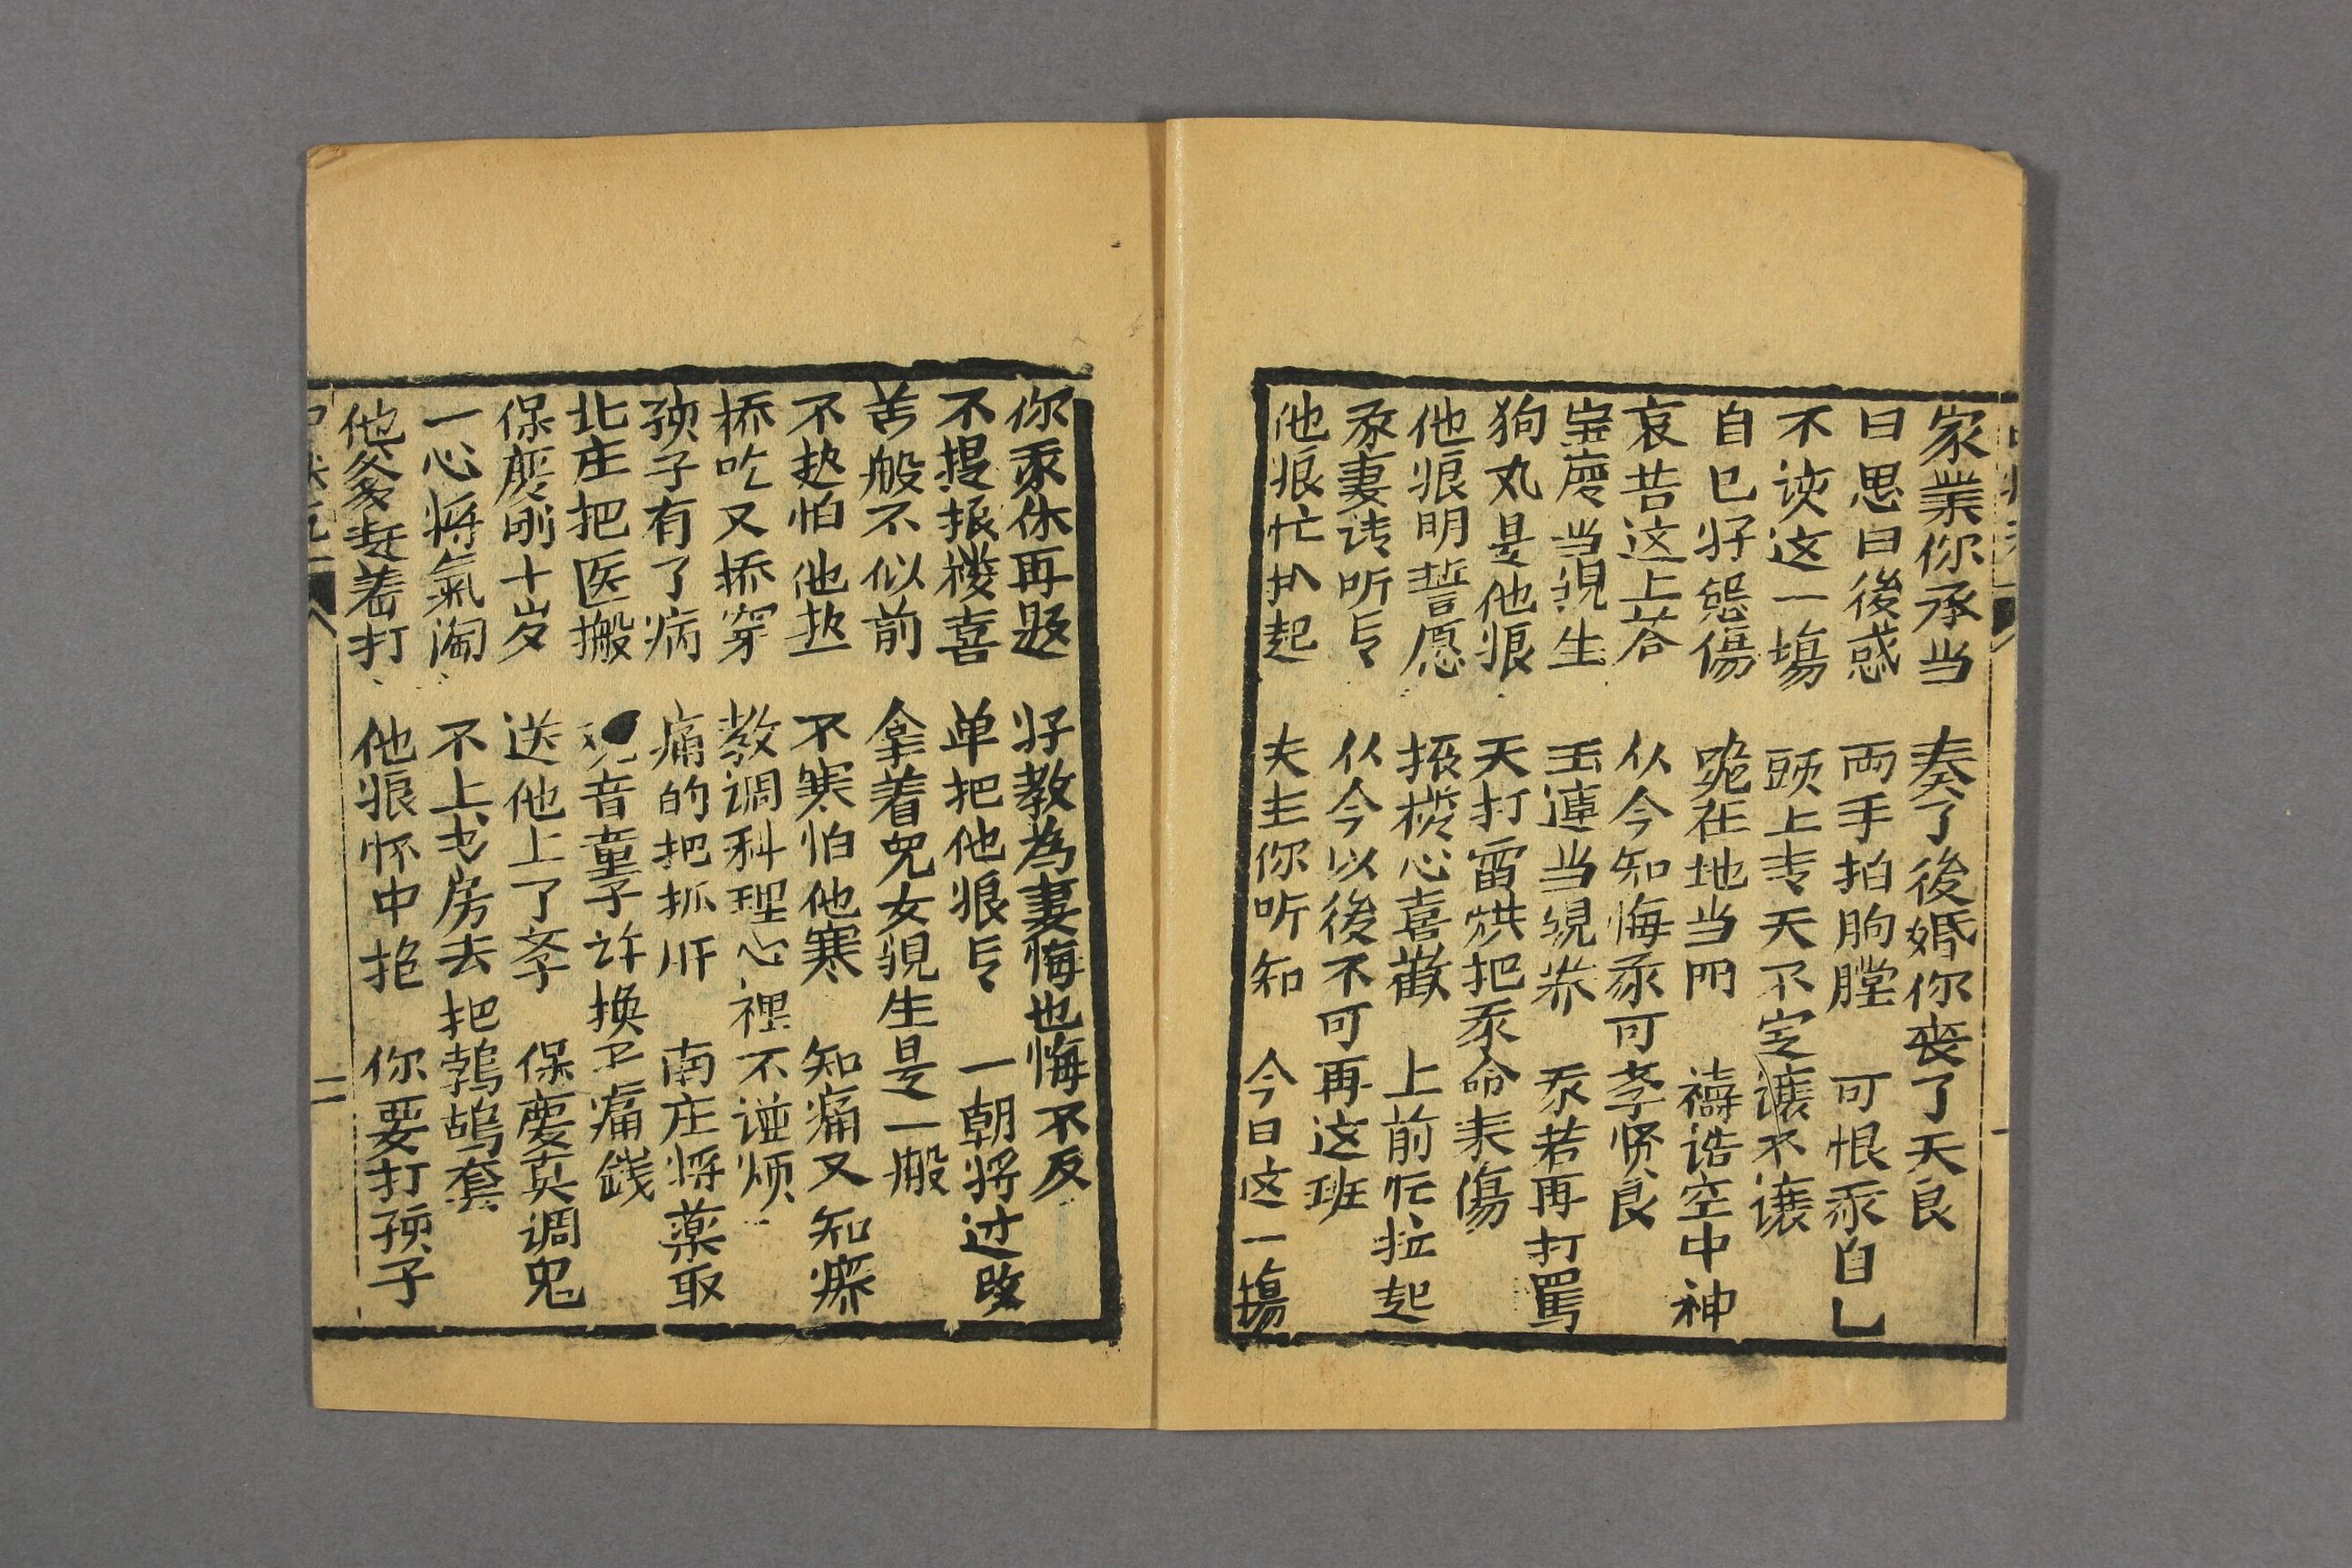 家業你承当 奏了後婚你丧了天良
曰思曰後惑 両手拍胸膛 可恨我自乚
不该这一塲 頭上青天不定讓不讓
自已好慇傷 跪在地当門 禱诰空中神
哀苦这上苍 从今知悔我可孝贤良
宝慶当親生 玉連当親养 我若再打罵
狗丸是他娘 天打雷烘把我命来傷
他娘明誓愿 振樅心喜歡 上前忙拉起
我妻请听言 从今以後不可再这班
他娘忙扒起 夫主你听知 今日这一塲
你我休再题 好教為妻悔也悔不反
不提振樅喜 单把他娘言 一朝将过改
苦般不似前 拿着兒女親生是一般
不热怕他热 不寒怕他寒 知痛又知痳
添吃又添穿 教调料理心裡不谥烦
孩子有了病 痛的把抓肝 南庄将薬取
北庄把医搬 音童子许换子痛銭
保慶刚十岁 送他上了孝 保慶真调鬼
一心将氣淘 不上书房去把鹁鴣套
他爹赶着打 他娘怀中抱 你要打孩子
二